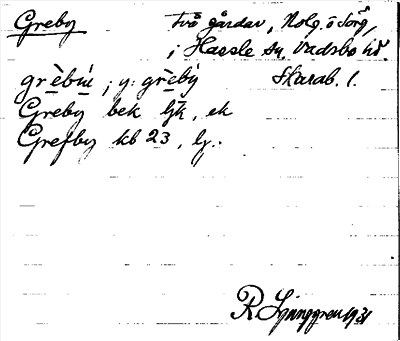 Greby Två gårdar, Nolg. o Sörg,
i Hassle sn, Vadsbo hd.
grèbú ; y: grèbý Skarab. l.
Greby bek ljk, ek
Grefby kb 23, lj.
R. Ljunggren 1931